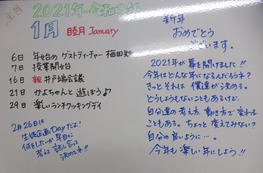 2021年 令和3年
1月 睦月 January
6日 年始めの ゲストティーチャー 福田
7日 授業開始日
16日 井戸端会議
21日 かよちゃんと 遊ぼう♪
29日 楽しいランチクッキングデイ
2月26日は
新年
おめでとう
ございます。
2021年が幕を開けました!!
今年はどんな年になるんだろう?
きっとそれは 僕達が決める。
どうしようもないこともあるけど、
自分達の考え方 動き方で 変わる
こともある。ちょっと 考えてみない?
自分の良いように…。
今年も楽しい年にしよう!!